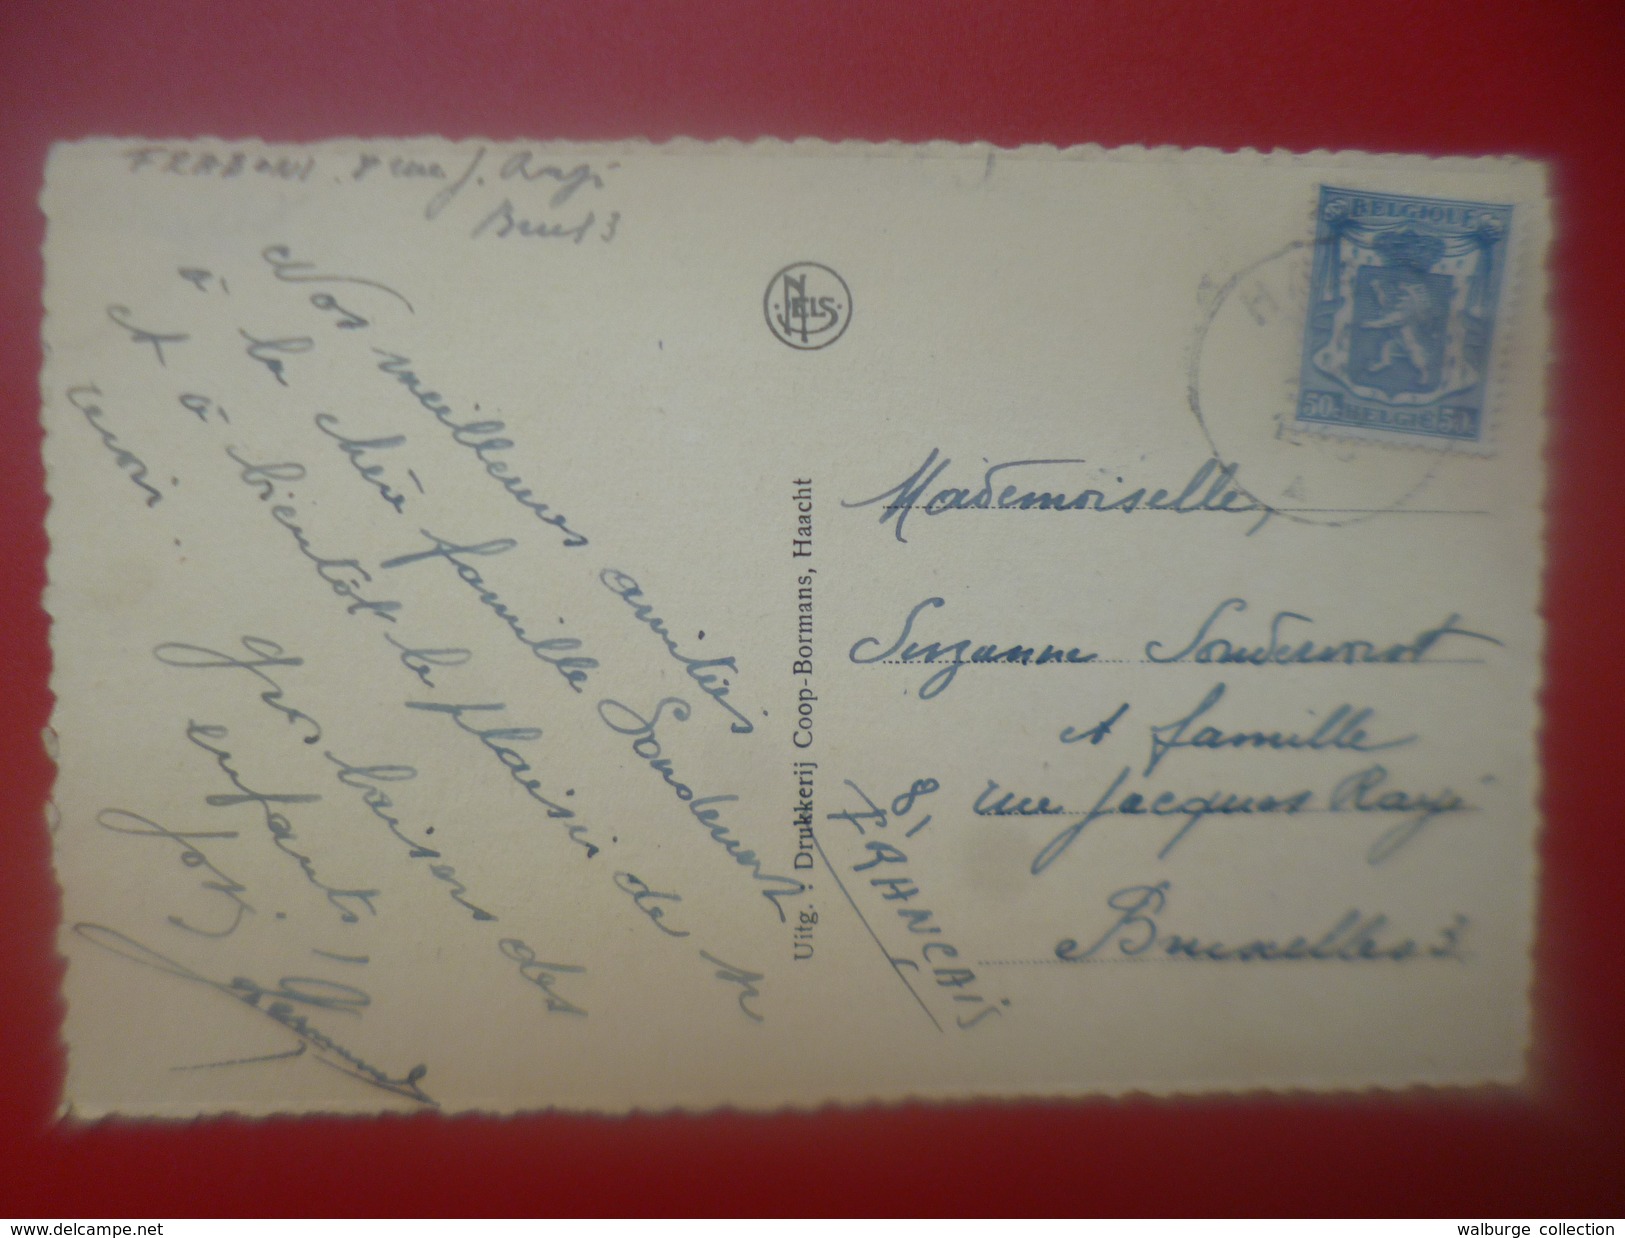 8 rue J.
Brux 3
Nos meilleures amitiés
à la chère famille Sondervorst
et à bientôt le plaisir de se
revoir.
Gros baisers des
enfants !
NELS
Uitg. : Drukkerij Coop-Bormans, Haacht
BELGIQUE
50c BELGIË 50c
Mademoiselle,
Suzanne Sondervorst
et famille
rue Jacques Rayé
8,
FRANÇAIS
Bruxelles 3
www.delcampe.net
walburge collection